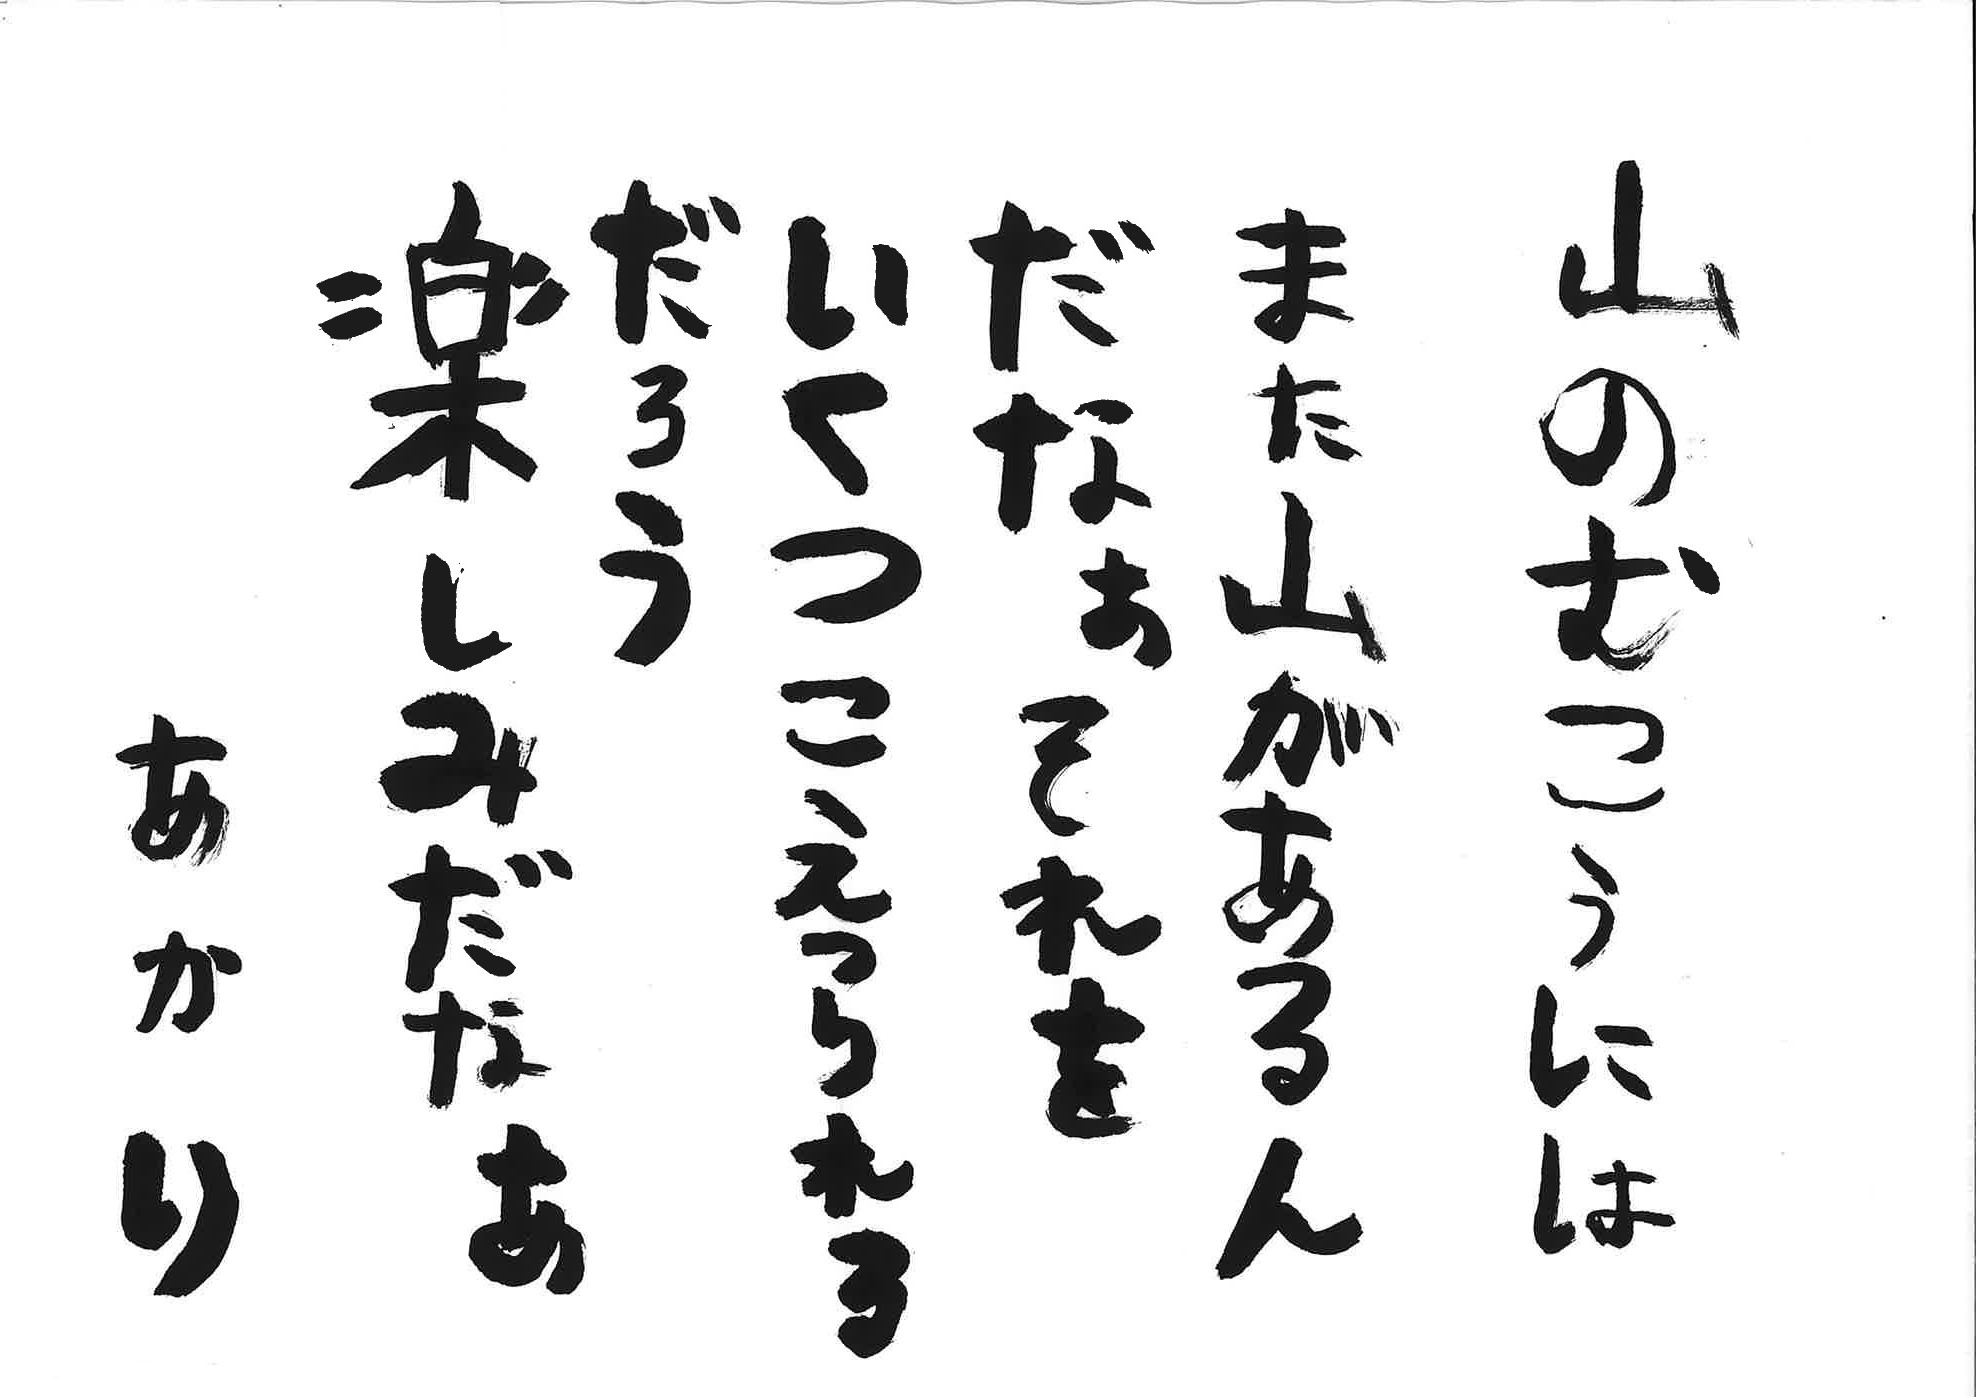 山のむこうには
また山があるん
だなぁ それを
いくつこえられる
だろう
楽しみだなぁ
あかり